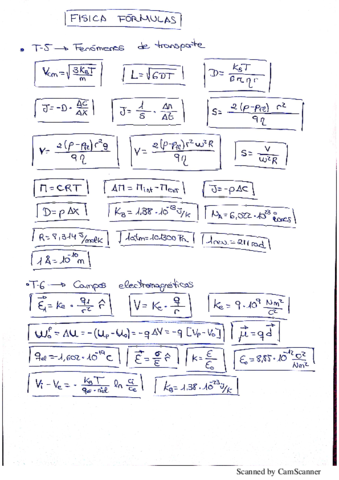 FISICA FÓRMULAS
• T-5 → Fenómenos de transporte
Vcm = √(3K_BT/m) L = √(6DT) D = K_BT/6πηr
J = -D · ΔC/ΔX J = 1/S · Δn/Δt S = 2(ρ-ρe) r²/9η
V = 2(ρ-ρe) r² g/9η V = 2(ρ-ρe) r² ω² R/9η S = V/ω²R
Π = CRT ΔΠ = Πint - Πext J = -ρΔC
D = ρΔX K_B = 1,38 · 10⁻²³ J/K N_A = 6,022 · 10²³
R = 8,314 J/molK 1atm = 101300 Pa 1rev = 2π rad
1Å = 10⁻¹⁰ m
• T-6 → Campos electromagnéticos
E₁ = Ke · q₁/r² r̂ V = Ke · q/r Ke = 9 · 10⁹ Nm²/C²
= ΔU = -(Up - U₀) = -q ΔV = -q [Vp - V₀] μ = q d
qe = -1,602 · 10⁻¹⁹ C E = σ/ε r̂ K = ε/ε₀ ε₀ = 8,85 · 10⁻¹² C²/Nm²
Vi - Ve = - K_BT/ ln ci/ce K_B = 1.38 · 10⁻²³ J/K
Scanned by CamScanner